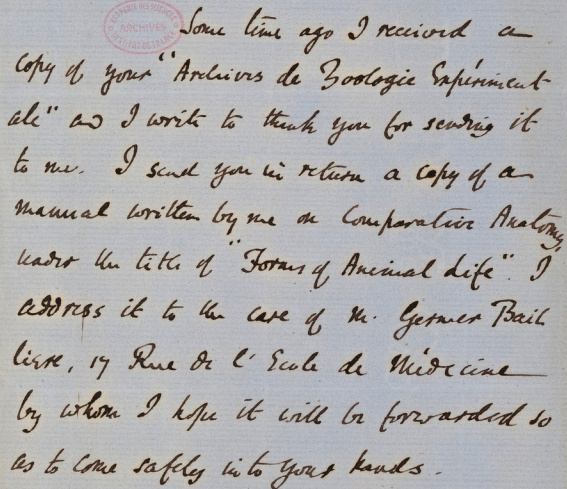 ACADÉMIE DES SCIENCES
ARCHIVES
INSTITUT DE FRANCE
Some time ago I received a
copy of your "Archives de Zoologie Expériment
ale" and I write to thank you for sending it
to me. I send you in return a copy of a
manual written by me on Comparative Anatomy,
under the title of "Forms of Animal Life". I
address it to the care of M. Germer Bail
liere, 17 Rue de l'Ecole de Médecine
by whom I hope it will be forwarded so
as to come safely into your hands.